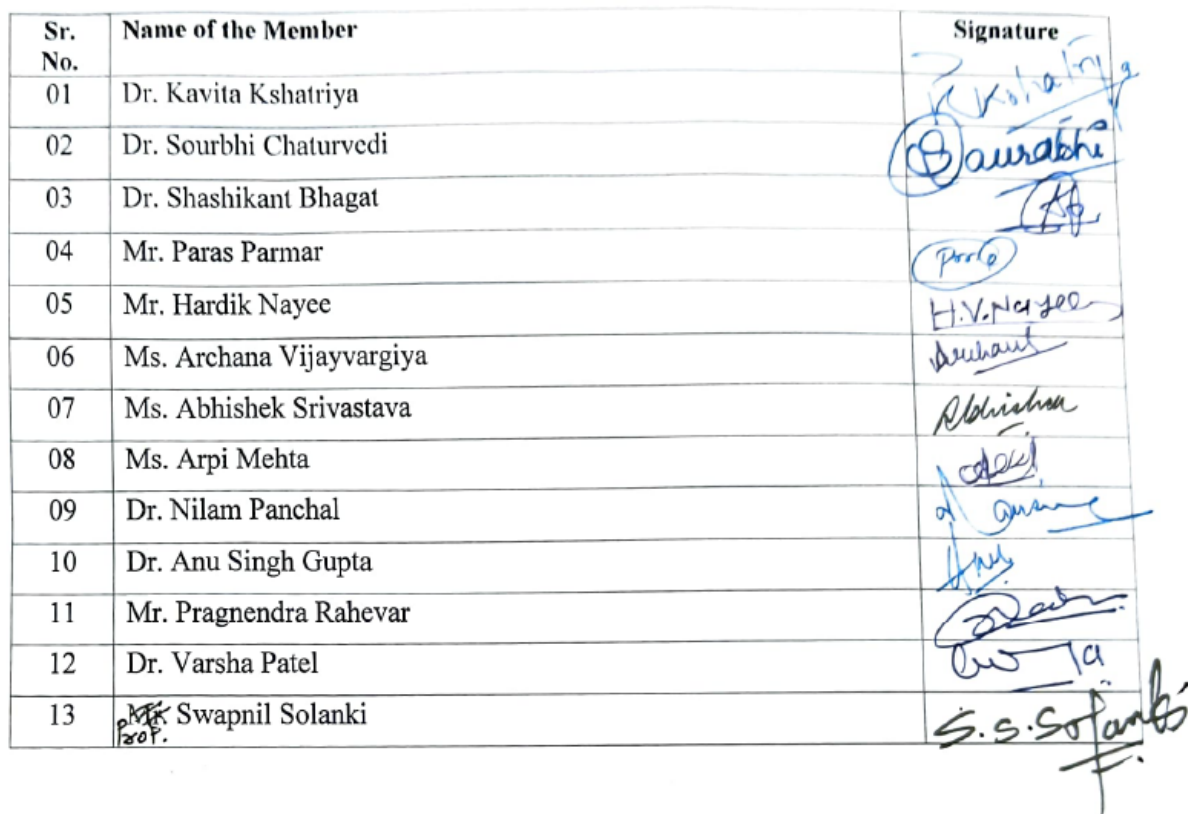 Sr. No. Name of the Member Signature
01 Dr. Kavita Kshatriya K Kshatriya
02 Dr. Sourbhi Chaturvedi Saurabhi
03 Dr. Shashikant Bhagat
04 Mr. Paras Parmar
05 Mr. Hardik Nayee H.V.Nayee
06 Ms. Archana Vijayvargiya
07 Ms. Abhishek Srivastava
08 Ms. Arpi Mehta
09 Dr. Nilam Panchal
10 Dr. Anu Singh Gupta Anu
11 Mr. Pragnendra Rahevar
12 Dr. Varsha Patel
13 Swapnil Solanki S.S.Solanki
Prof.